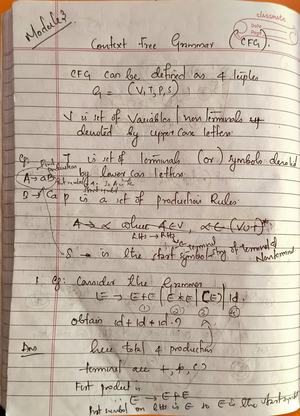 Module 3
classmate
Date
Page
Context Free Grammar (CFG)
CFG can be defined as 4 tuples
G = (V, T, P, S)
V is set of Variables | non terminals
denoted by upper case letters
Eg: T is set of terminals (or) symbols denoted
by lower case letters.
A → aB
B → Ca P is a set of production Rules
A → α where A ∈ V, α ∈ (V∪T)*
LHS → RHS
S → is the start symbol string of terminal & Nonterminal
1. Eg: Consider the Grammar
E → E+E | E*E | (E) | id
① ② ③ ④
obtain id + id + id ?
Ans here total 4 production
terminal are +, *, ( )
First product is
E → E+E
first symbol on LHS is E so E is the start symbol